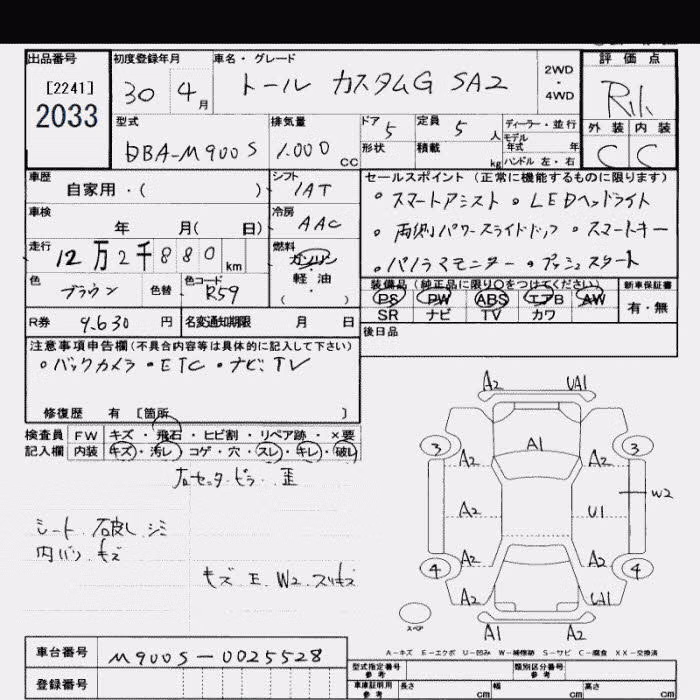 出品番号 初度登録年月 車名・グレード 評価点
[2241] 30 4月 トール カスタムG SA2 2WD・4WD
2033
型式 排気量 ドア 5 定員 5人 ディーラー・並行 外装 内装
DBA-M900S 1.000 CC 形状 積載 kg モデル年式 年 C C
ハンドル 左・右
車歴 シフト セールスポイント (正常に機能するものに限ります)
自家用・( ) IAT ・スマートアシスト ・LEDヘッドライト
車検 冷房 ・両側パワースライドドア ・スマートキー
年 月( 日) AAC ・パノラマモニター ・プッシュスタート
走行 燃料
12万2千880km ガソリン・軽油・( )
色 色替 色コード 装備品 (純正品に限り○をつけてください) 新車保証書
ブラウン R59 PS PW ABS エアB AW 有・無
R券 9.630円 名変通知期限 月 日 SR ナビ TV カワ
後日品
注意事項申告欄 (不具合内容等は具体的に記入して下さい)
・バックカメラ ・ETC ・ナビ、TV
修復歴 有 [箇所 ]
検査員 FW キズ・飛石・ヒビ割・リペア跡・×要
記入欄 内装 キズ・汚レ・コゲ・穴・スレ・キレ・破レ
右センターピラー 歪
シート 破れ シミ
内バリ キズ
キズ E W2 スリキズ
A2 UA1
3 A1 3
A2 A2
W2
A2 U1
A2 A2
4 4
A2 UA1
スペア
A1 A2
A-キズ E-エクボ U-凹み W-補修跡 S-サビ C-腐食 XX-交換済
車台番号 M900S-0025528
登録番号
型式指定番号 参考 類別区分番号 参考
車庫証明用 参考 長さ cm 幅 cm 高さ cm